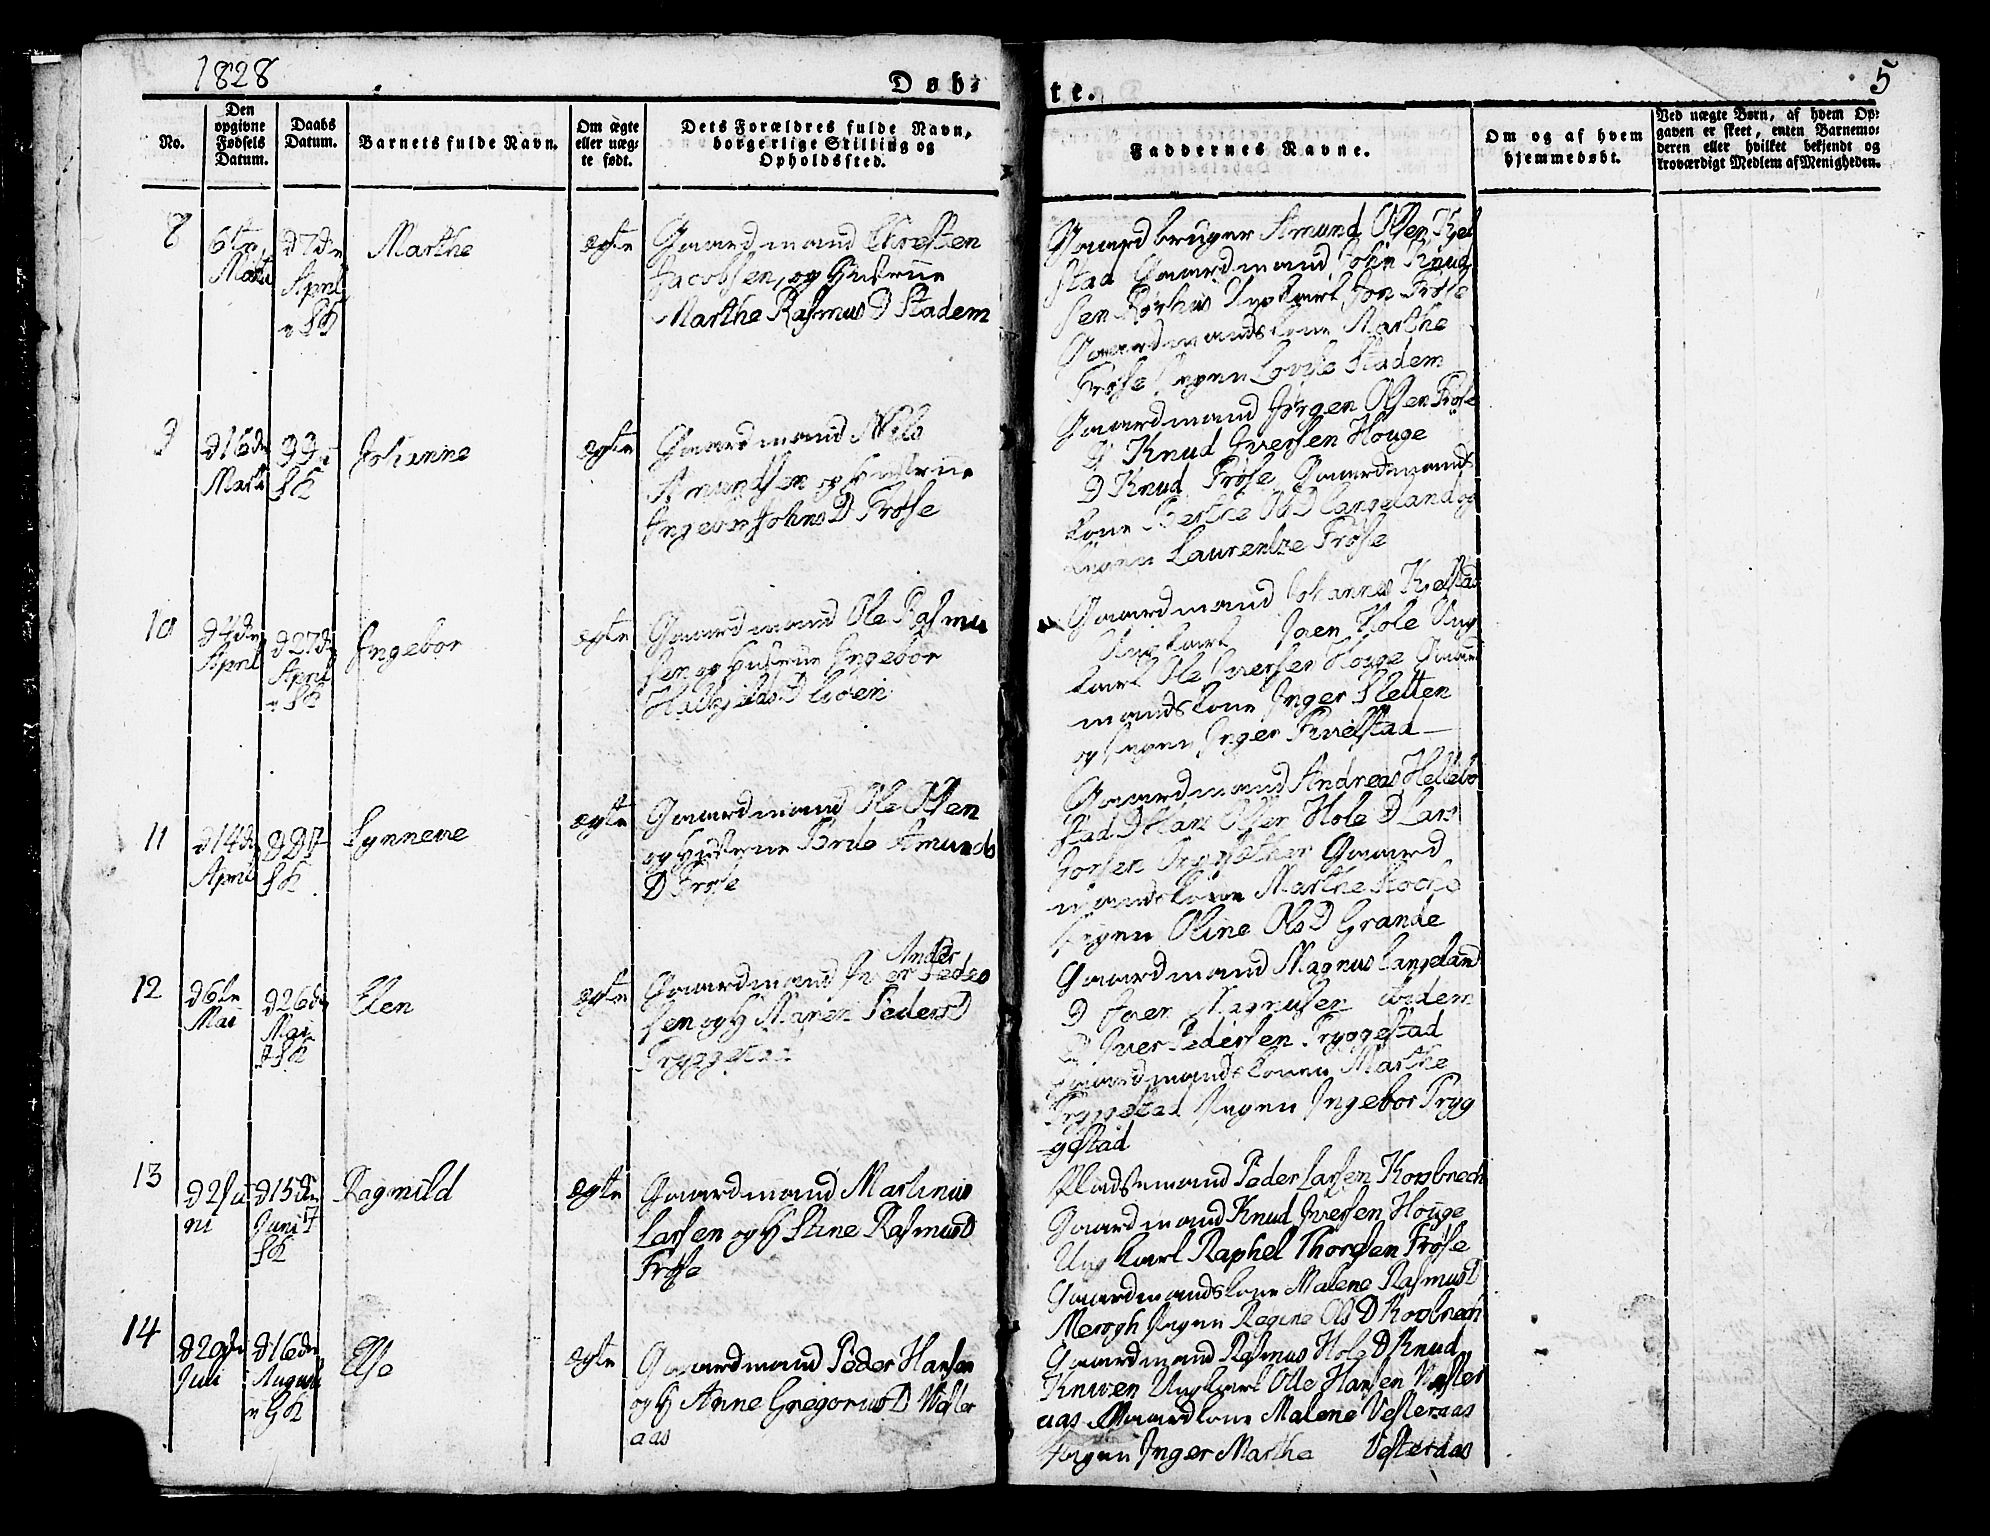 1828
Døb-
te.
5
No.
Den
opgivne
Fødsels
Datum.
Daabs
Datum.
Barnets fulde Navn.
Om ægte
eller uæg-
te født.
Dets Forældres fulde Navn,
borgerlige Stilling og
Opholdssted.
Faddernes Navne.
Om og af hvem
hjemmedøbt.
Ved uægte Børn, af hvem Op-
gaven er skeet, enten Barnemo-
deren eller hvilket bekjendt og
troværdigt Medlem af Menigheden.
8
6te
d 7de
April
Marthe
ægte
Gaardmand Christen
Jacobsen, og Hustrue
Marthe Rasmus D Stadem
Gaardbruger Amund Olsen Kjel
stad Gaardmand John Knud
sen Rørhus Ungkarl Jon Frøse
Gaardmandskone Marthe
Frøse Pigen Lovise Stadem
9
d 16de
Johanne
ægte
Gaardmand Nils
Amundsen og Hustrue
Ingebor Johns D Frøse
Gaardmand Jørgen Olsen Frøse
D Knud Iversen Houge
D Knud Frøse Gaardmands
kone Berthe Ols D Langeland og
Pigen Laurentze Frøse
10
d 4de
April
d 27de
April
Ingebor
ægte
Gaardmand Ole Rasmu
sen og Hustrue Ingebor
Gaardmand Johannes Kjelstad
Ungkarl Joen Hole Ung
karl Ole Iversen Houge Gaard
mandskone Inger Sletten
og Pigen Inger Tivelstad
11
d 14de
April
Synneve
ægte
Gaardmand Ole Olsen
og Hustrue Brite Amunds
D Frøse
Gaardmand Andreas Hellebo
stad D Hans Olsen Hole D Lars
Gaard
mandskone Marthe
Pigen Oline Ols D Grande
12
d 6te
Mai
d 26de
Mai
Elen
ægte
Ander
Gaardmand Iver Peder
sen og H Maren Peders D
Tryggestad
Gaardmand Magnus Langeland
D Joen Magnusen
D Iver Pedersen Tryggestad
Gaardmandskonen Marthe
Tryggestad Pigen Ingebor Tryg
gestad
13
d 2 Ju
ni
d 15de
Juni
Ragnild
ægte
Gaardmand Martinus
Larsen og H Stine Rasmus D
Frøse
Pladsemand Peder Larsen Korsbrech
Gaardmand Knud Iversen Houge
Ungkarl Raphel Thorsen Frøse
Gaardmandskone Malene Rasmus D
Merogh Pigen Regine Ols D Korsbrech
14
d 29de
Juli
d 16de
August
Else
ægte
Gaardmand Peder Hansen
og H Anne Gregorius D Vester
aas
Gaardmand Rasmus Hole D Knud
Knuven Ungkarl Olle Hansen Vester
aas Gaardkone Malene Vesteraas
Pigen Inger Marthe Vesteraas